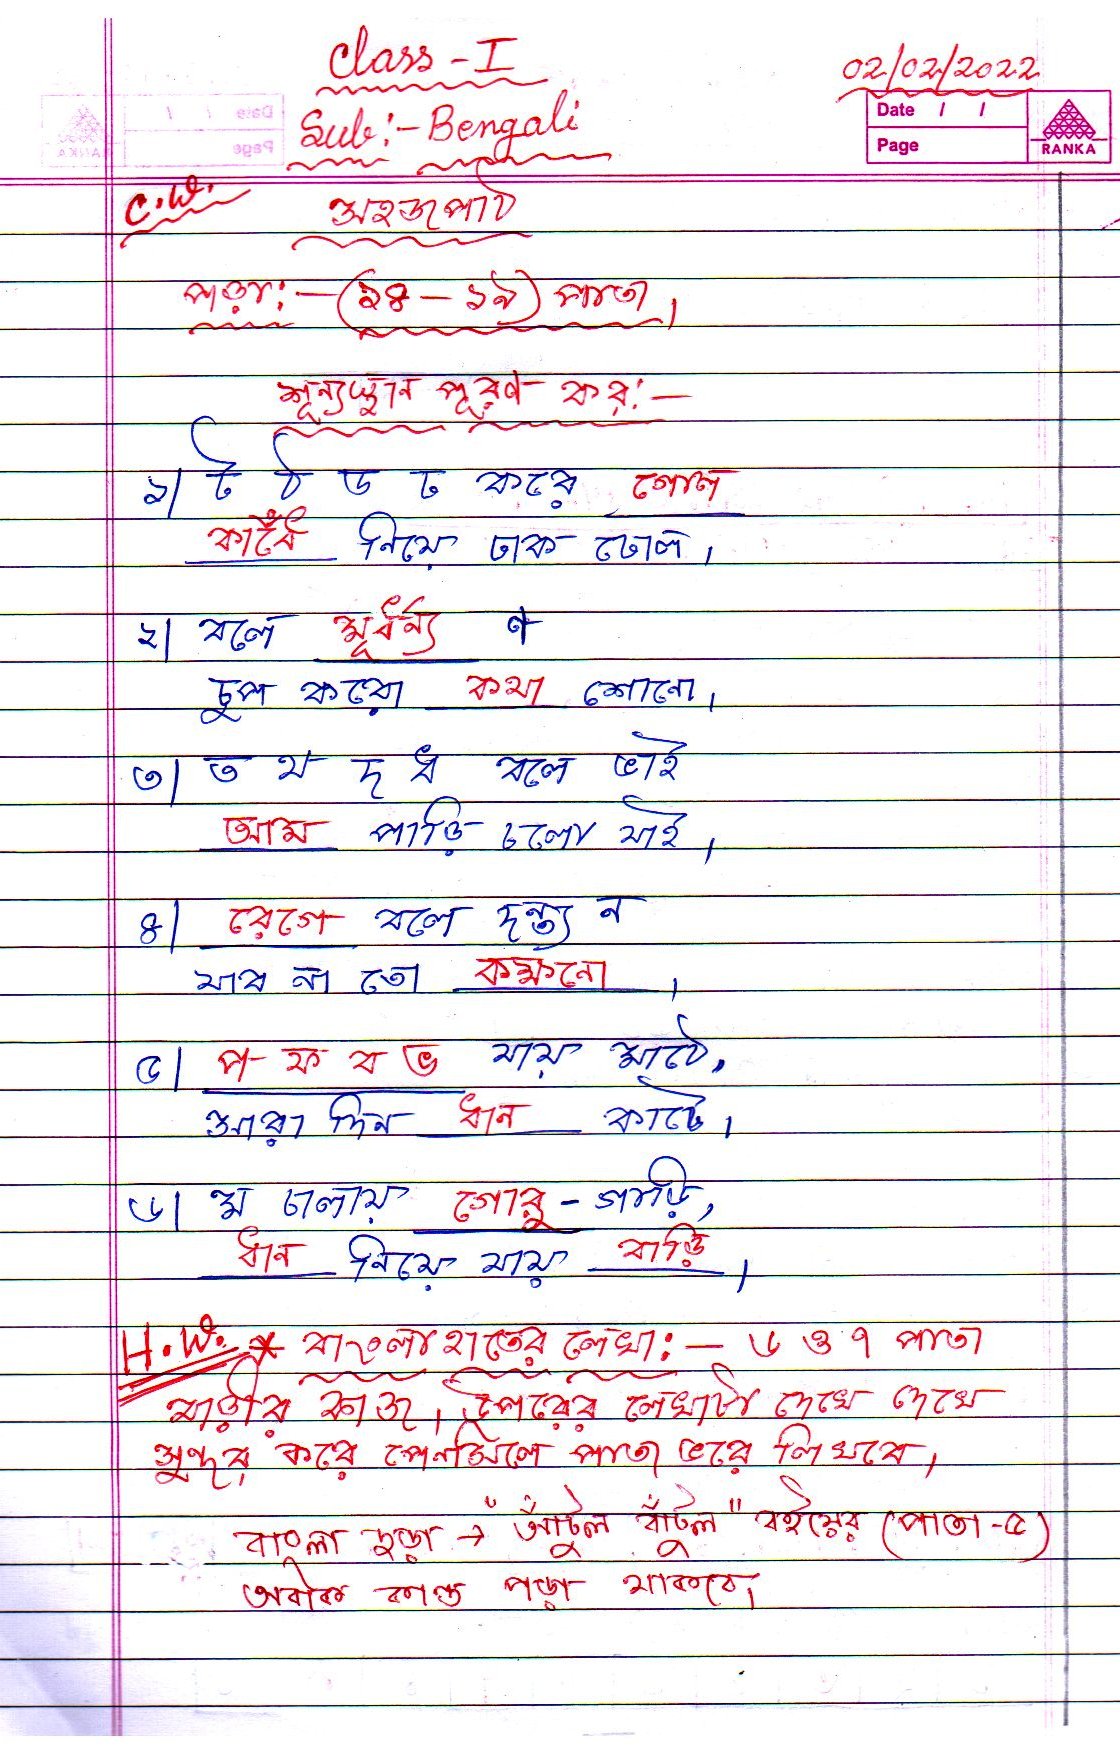 Class - I
02/02/2022
Sub:- Bengali
Date / /
Page
RANKA
C.W.
সহজপাঠ
পড়া:- (১৪ - ১৯) পাতা।
শূন্যস্থান পূরণ কর:-
১| ট ঠ ড ঢ করে গোল
কাঁধে নিয়ে ঢাক ঢোল।
২| বলে মূর্ধন্য ণ
চুপ করো কথা শোনো।
৩| ত থ দ ধ বলে ভাই
আম পাড়ি চলো যাই।
৪| রেগে বলে দন্ত্য ন
যাব না তো কক্ষনো।
৫| প ফ ব ভ যায় মাঠে,
সারা দিন ধান কাটে।
৬| ম চালায় গোরু - গাড়ি,
ধান নিয়ে যায় বাড়ি।
H.W. * বাংলা হাতের লেখা:- ৬ ও ৭ পাতা
বাড়ীর কাজ। উপরের লেখাটা দেখে দেখে
সুন্দর করে পেনসিলে পাতা ভরে লিখবে।
বাংলা ছড়া → "আঁটুল বাঁটুল" বইয়ের (পাতা -৫)
অবাক কান্ড পড়া থাকবে।